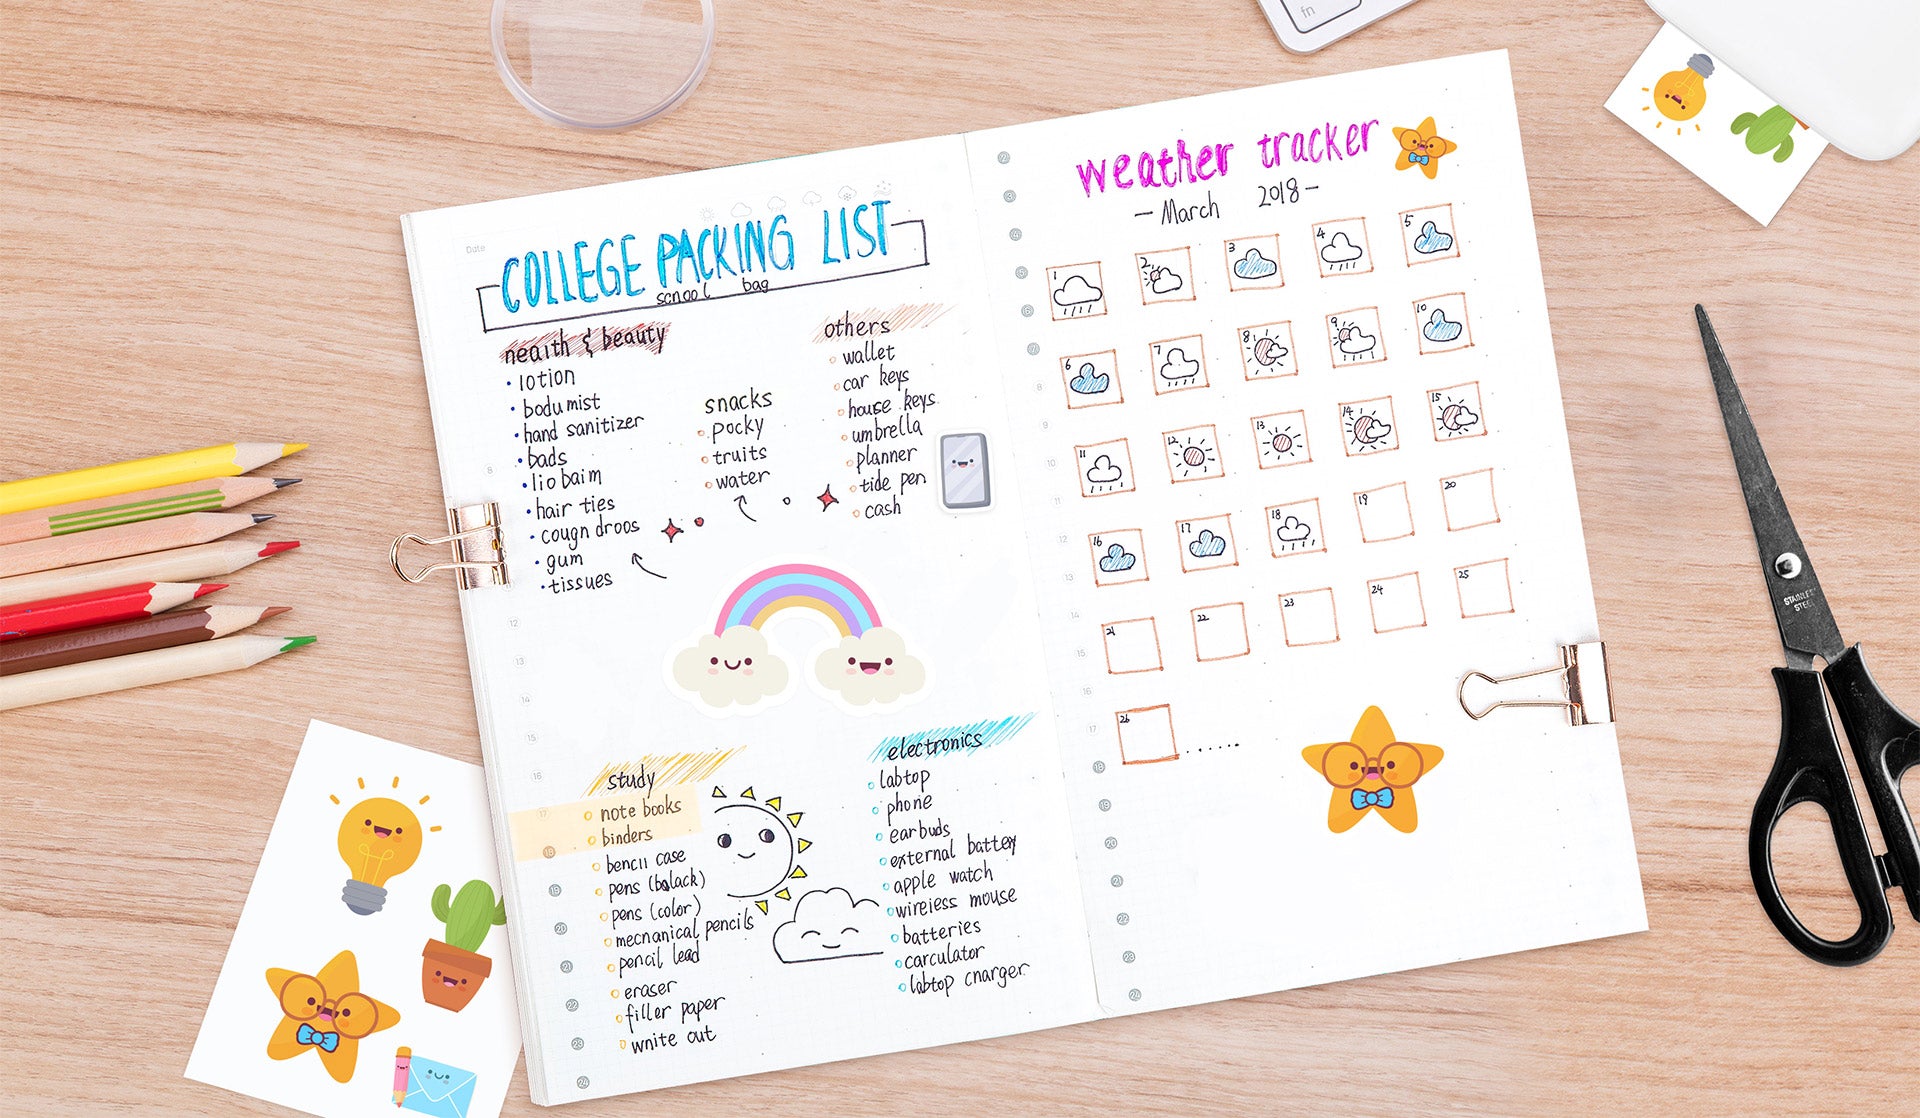 fn
Date
COLLEGE PACKING LIST
scnool bag
neaith & beauty
lotion
bodumist
hand sanitizer
bads
lio baim
hair ties
cougn droos
gum
tissues
snacks
pocky
truits
water
others
wallet
car keys
house keys
umbrella
planner
tide pen
cash
study
note books
binders
bencil case
pens (bolack)
pens (color)
mecnanical pencils
pencil lead
eraser
filler paper
wnite out
electronics
labtop
phone
earbuds
external battery
apple watch
wireless mouse
batteries
carculator
labtop cnarger
8
12
13
14
15
16
17
18
19
20
21
22
23
24
weather tracker
- March 2018 -
1 2 3 4 5
6 7 8 9 10
11 12 13 14 15
16 17 18 19 20
21 22 23 24 25
26 ......
2
3
4
5
6
7
8
9
10
11
12
13
14
15
16
17
18
19
20
21
22
23
24
STAINLESS
STEEL